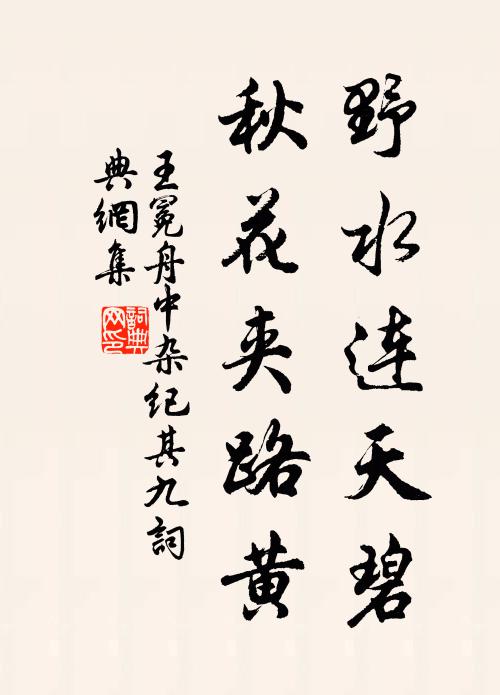 野水连天碧
秋花夹路黄
王冕舟中杂纪其九詞
典網集
詞典网印